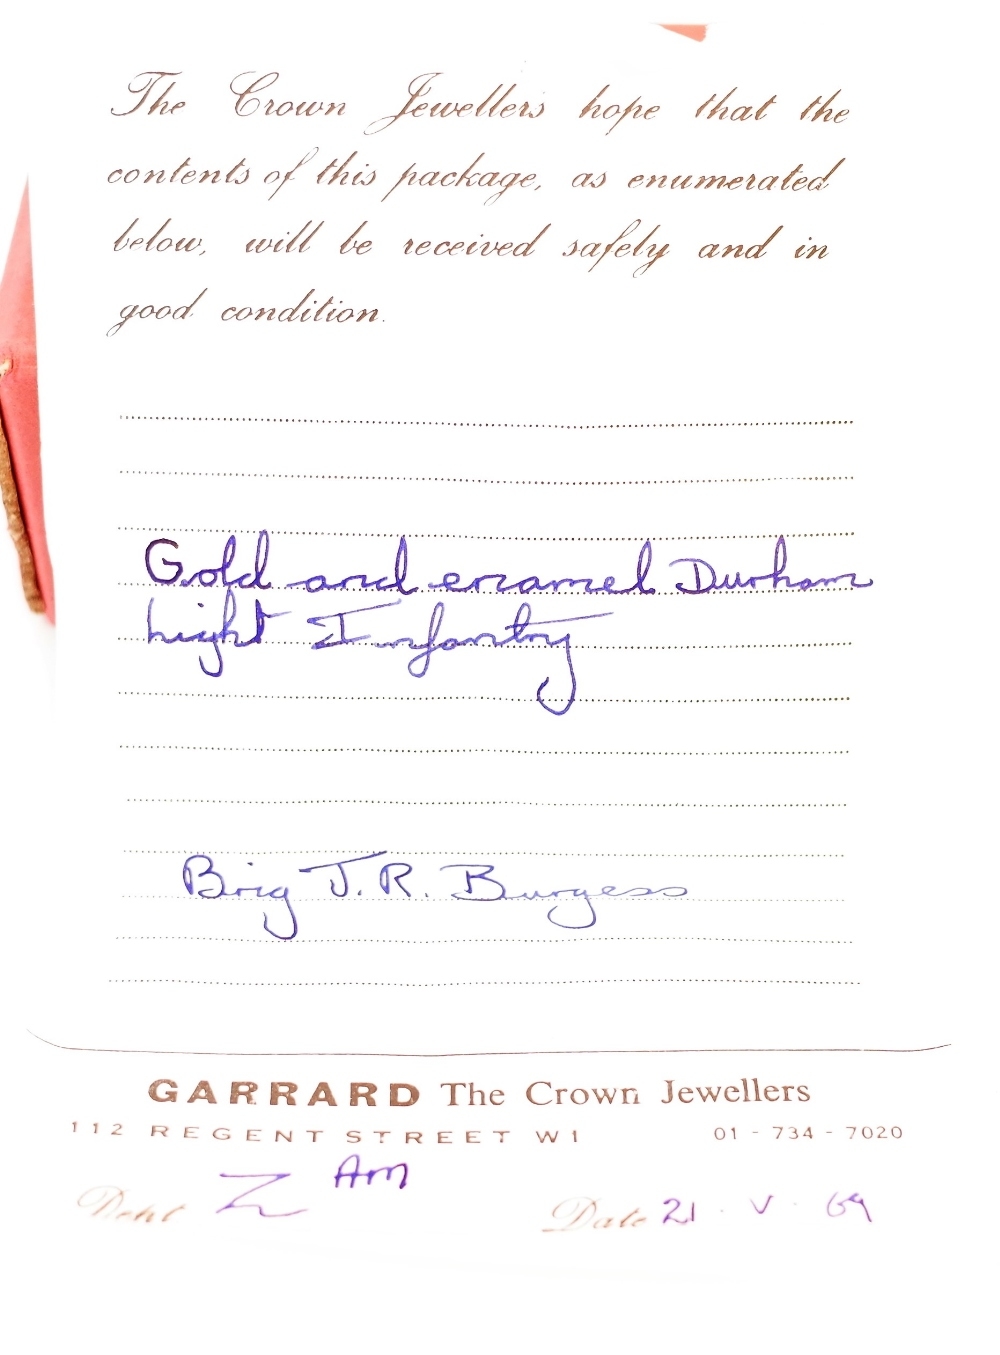 The Crown Jewellers hope that the
contents of this package, as enumerated
below, will be received safely and in
good condition.
Gold and enamel Durham
Light Infantry
Brig J. R. Burgess
GARRARD The Crown Jewellers
112 REGENT STREET W1 01 - 734 - 7020
Dept Z Am Date 21 . V . 69